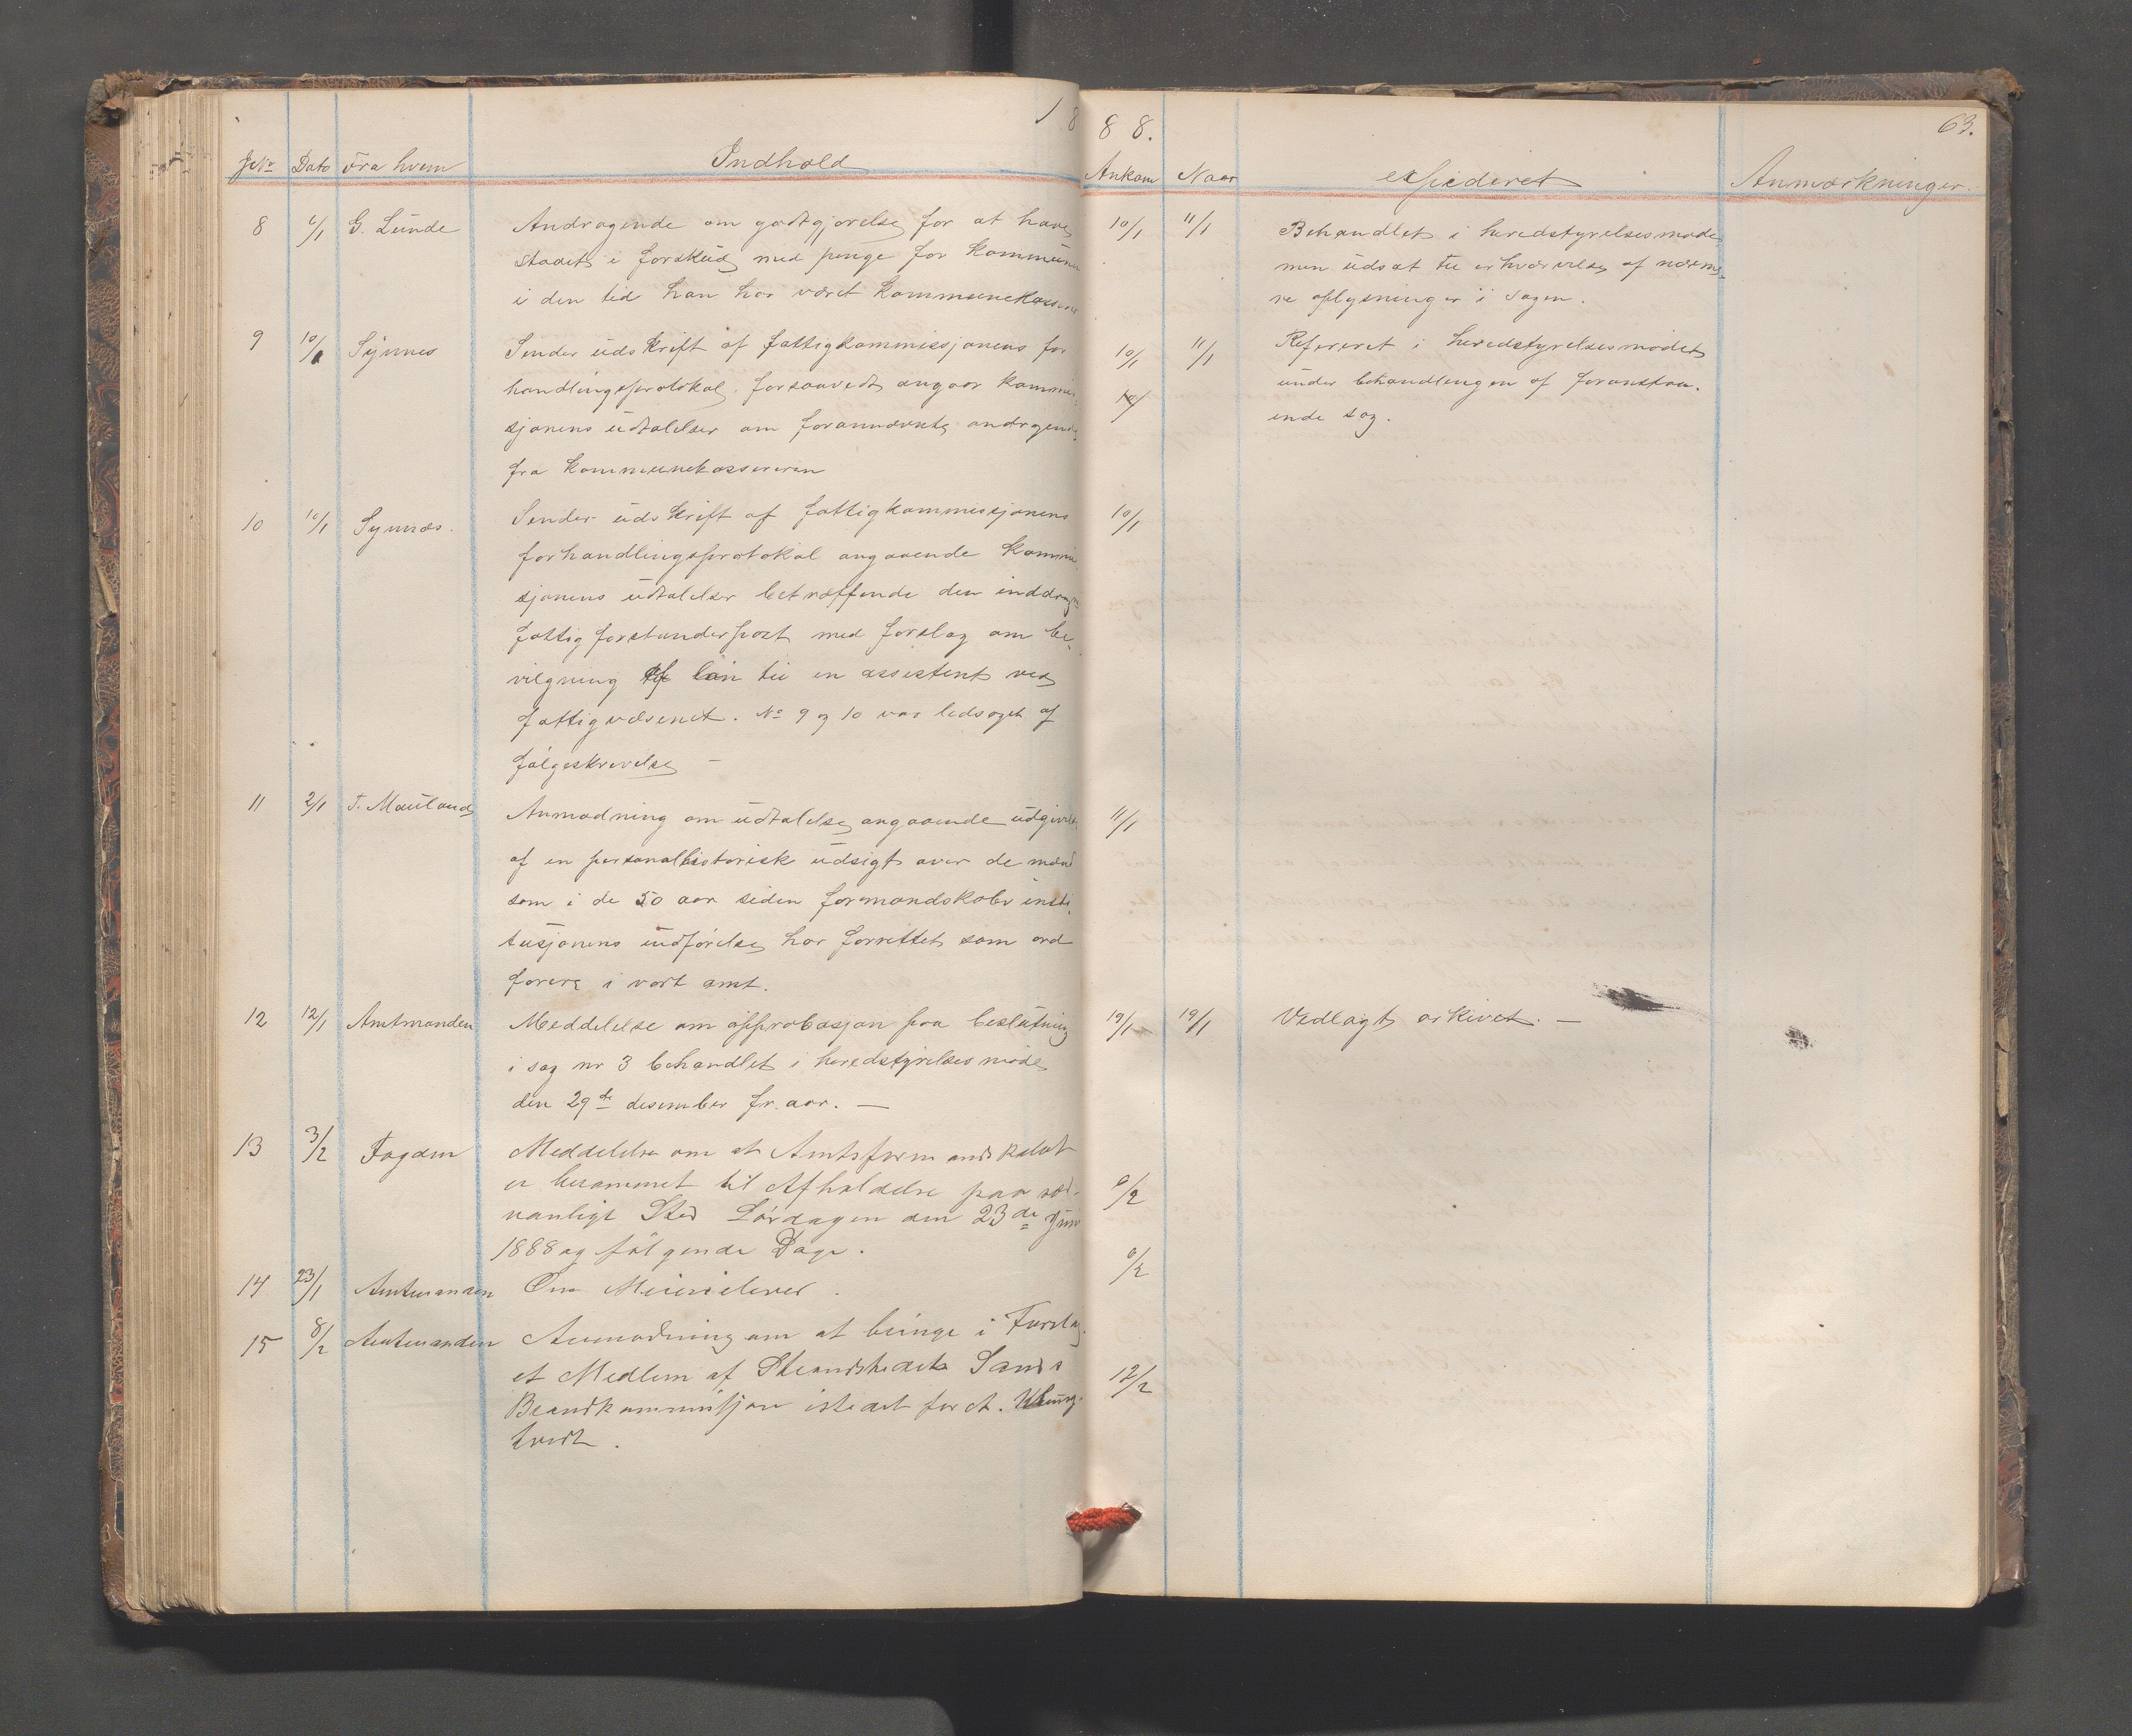 1888.
63.
JNo Dato Fra hvem Indhold Ankom Naar expederet Anmærkninger.
8 6/1 G. Lunde Andragende om godtgjørelse for at have 10/1 11/1 Behandlet i heredstyrelsesmøde
staaet i forskud med penge for kommunen men udsat til erhværvelse af nærme-
i den tid han har været kommunekasserer re oplysninger i sagen.
9 10/1 Synnes Sender udskrift af fattigkommissjonens for 10/1 11/1 Refereret i heredstyrelsesmødet
handlingsprotokol forsaavedt angaar kommis- under behandlingen af foranstaa-
sjonens udtalelser om forannævnte andragende ende sag.
fra kommunekassereren
10 10/1 Synnes. Sender udskrift af fattigkommissjonens 10/1
forhandlingsprotokol angaaende kommis
sjonens udtalelser betræffende den inddragne
fattigforstanderpost med forslag om be-
vilgning af løn til en assistent ved
fattigvæsenet. No 9 og 10 var ledsaget af
følgeskrivelse –
11 2/1 T. Mauland Anmodning om udtalelse angaaende udgivelse 11/1
af en personalhistorisk udsigt over de mænd
som i de 50 aar siden formandskabs insti-
tusjonens indførelse har forrettet som ord
førere i vort amt.
12 12/1 Amtmanden Meddelelse om approbasjon paa beslutning 19/1 19/1 Vedlagt arkivet. –
i sag nr 3 behandlet i heredstyrelsesmøde
den 29de desember fr. aar. –
13 3/2 Fogden Meddelelse om at Amtsformandskabet
er berammet til Afholdelse paa sæd- 6/2
vanligt Sted Lørdagen den 23de Juni
1888 og følgende Dage.
14 23/1 Amtmanden Om Meierielever. 6/2
15 8/2 Amtmanden Anmodning om at bringe i Forslag
et Medlem af Strandstedet Sands 12/2
Brandkommissjon istedet for
tvedt.